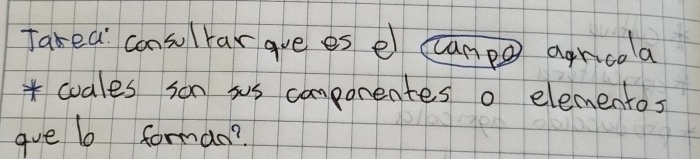 Tarea: consultar que es el campo agricola
* cuales son sus componentes o elementos
que lo forman?